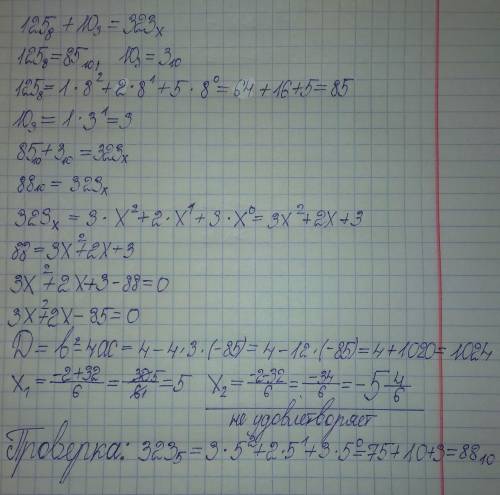 125₈ + 10₃ = 323ₓ
125₈ = 85₁₀, 10₃ = 3₁₀
125₈ = 1·8² + 2·8¹ + 5·8⁰ = 64 + 16 + 5 = 85
10₃ = 1·3¹ = 3
85₁₀ + 3₁₀ = 323ₓ
88₁₀ = 323ₓ
323ₓ = 3·x² + 2·x¹ + 3·x⁰ = 3x² + 2x + 3
88 = 3x² + 2x + 3
3x² + 2x + 3 - 88 = 0
3x² + 2x - 85 = 0
D = b² - 4ac = 4 - 4·3·(-85) = 4 - 12·(-85) = 4 + 1020 = 1024
x₁ = (-2+32)/6 = 30/6 = 5 x₂ = (-2-32)/6 = -34/6 = -5 4/6
не удовлетворяет
Проверка: 323₅ = 3·5² + 2·5¹ + 3·5⁰ = 75 + 10 + 3 = 88₁₀